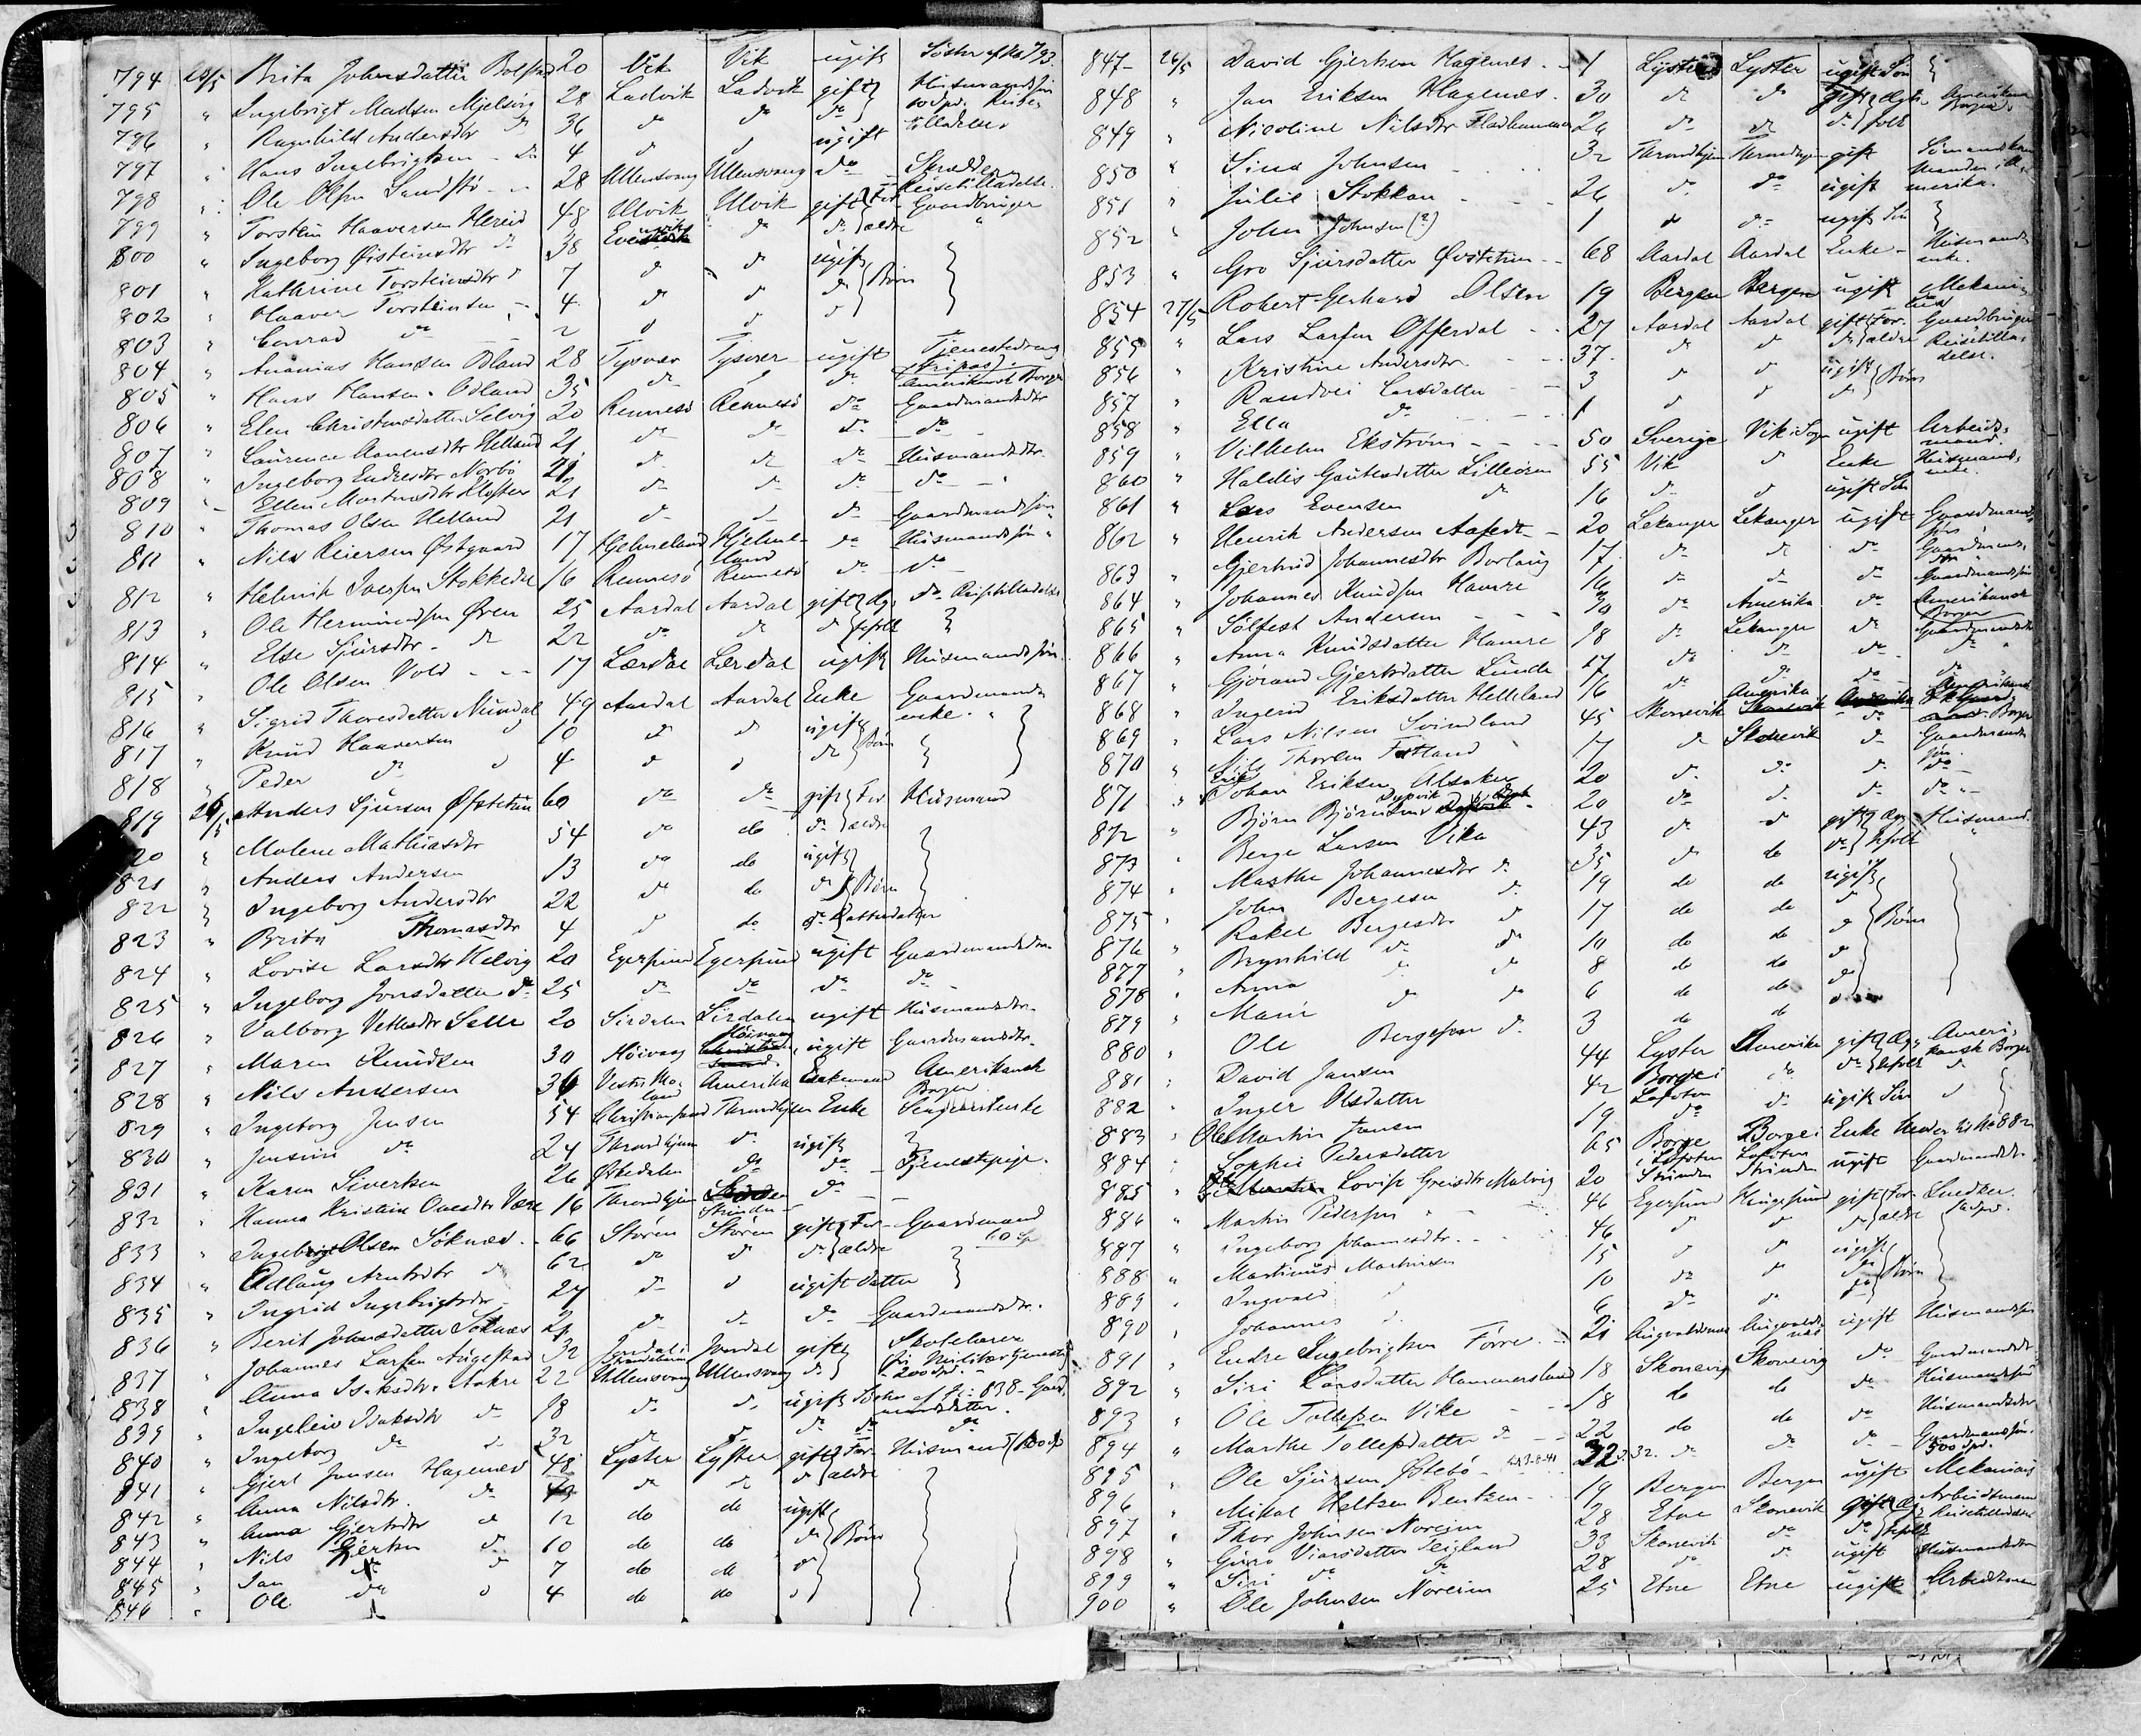 794 20/5 Brita Johnsdatter 20 Vik Vik ugift Søster af No 793
795 " Ingebrigt Madsen Mjelsvig 28 Ladvik Ladvik gift Husmandssøn
796 " Ragnhild Andersdtr do 36 do do do 10 Spd.
797 " Hans Ingebrigtsen do 4 do do ugift
798 " Ole Olsen Sandstø 28 Ullensvang Ullensvang do Skrædder
799 " Torstein Haaversen Hereid 48 Ulvik Ulvik gift For- Gaardbruger
800 " Ingeborg Øisteinsdtr do 38 do do ældre "
801 " Kathrine Torsteinsdtr do 7 do do ugift
802 " Haaver Torsteinsen 4 do do do Børn
803 " Conrad do 2 do do do
804 " Ananias Hansen Ødland 28 Tysvær Tysvær ugift Tjenestedreng
805 " Hans Hansen Ødland 35 do do do Amerikansk Borger
806 " Elen Christensdatter Selvig 20 Rennesø Rennesø do Gaardmandsdtr
807 " Laurence Helland 21 do do do do
808 " Ingeborg Endresdtr Norbø 21 do do do Husmandsdtr
809 " Ellen Kloster 21 do do do do
810 " Thomas Olsen Helland 21 do do do Gaardmandssøn
811 " Nils Reiersen Østgaard 17 Hjelmeland Hjelmeland do Husmandssøn
812 " Helmik Iversen Stokkedal 16 Rennesø Rennesø do do
813 " Ole Øren 25 Aardal Aardal gift Æg- do Reisetilladelse
814 " Else Sjursdtr do 22 do do do tefolk
815 " Ole Olsen Vold 17 Lærdal Lærdal ugift Husmandssøn
816 " Sigrid Thoresdatter Nundal 49 Aardal Aardal Enke Gaardmandsenke
817 " Knud Haaversen do 10 do do ugift
818 " Peder do do 4 do do do Børn
819 26/5 Anders Sjursen Øfstetun 60 do do gift For- Husmand
820 " Malene Mathiasdtr 54 do do do ældre
821 " Anders Andersen 13 do do ugift
822 " Ingeborg Andersdtr 22 do do do Børn
823 " Brita Thomasdtr 4 do do do Datterdatter
824 " Lovise Larsdtr Helvig 20 Egersund Egersund ugift Gaardmandsdtr
825 " Ingeborg Jonsdatter do 25 do do do do
826 " Valborg Vetlesdtr Selle 20 Sirdalen Sirdalen ugift Husmandsdtr
827 " Maren Knudsen 30 Høivaag Høivaag ugift Gaardmandsdtr
828 " Nils Andersen 36 Vestre Moland Amerika Enkemand Amerikansk Borger
829 " Ingeborg Jensen 54 Christiansund Throndhjem Enke
830 " Jensine do 24 Throndhjem do ugift
831 " Karen Sivertsen 26 Østedalen do do Tjenestepige
832 " Hanna Kristine Olesdtr Være 16 Throndhjem Strinden do
833 " Ingebrigt Olsen Soknæs 66 Støren Støren gift For- Gaardmand
834 " Adlaug Arntsdtr do 62 do do do ældre
835 " Ingrid Ingebrigtsdtr 27 do do ugift Datter
836 " Berit Johnsdatter Soknæs 21 do do do Gaardmandsdtr.
837 " Johannes Larsen Augestad 32 Jondal Jondal gift Skolelærer
838 " Anna Isaksdtr Aakre 22 Ullensvang Ullensvang do 200 Spd.
839 " Ingeleiv Isaksdtr do 18 do do ugift Søster af No 838 Gaardmandsdatter
840 " Ingeborg do do 32 do do do do do
841 " Gjert Jensen Hagenes 48 Lyster Lyster gift For- Husmand
842 " Anna Nilsdtr. do do do do ældre
843 " Anna Gjertsdtr do 12 do do ugift
844 " Nils Gjertsen do 10 do do do Børn
845 " Jan do do 7 do do do
846 " Ole do do 4 do do do
847 26/5 David Gjertsen Hagenes 1 Lyster Lyster ugift Søn
848 " Jan Eriksen Hagenes 30 do do gift Ægte- Amerikansk Borger
849 " Nicoline Nilsdtr Fladhammer 26 do do do folk
850 " Sina Johnsen 32 Throndhjem Throndhjem gift Manden i Amerika.
851 " Julie Stokkan 26 do do ugift
852 " John Johnsen (?) 1 do do ugift Søn
853 " Gro Sjursdatter Øvstetun 68 Aardal Aardal Enke Husmandsenke.
854 27/5 Robert Gerhard Olsen 19 Bergen Bergen ugift Mekanikus
855 " Lars Larsen Offerdal 27 Aardal Aardal gift For- Gaardbruger
856 " Kristine Andersdtr 37 do do do ældre Reisetilladelse.
857 " Randvei Larsdatter 3 do do ugift
858 " Ella do 1 do do do Børn
859 " Vilhelm Ekstrøm 50 Sverige Vik i Sogn ugift Arbeidsmand.
860 " Haldis Gautesdatter Lilleøren 55 Vik do Enke Husmandsenke.
861 " Lars Evensen do 16 do do ugift Søn
862 " Henrik Andersen Aafedt 20 Lekanger Lekanger ugift Gaardmandssøn
863 " Gjertrud Johannesdtr Borlaug 17 do do do Gaardmandsdtr
864 " Johannes Knudsen Hamre 16 do do do Gaardmandssøn
865 " Sølfest Andersen 30 do Amerika do Amerikansk Borger
866 " Anna Knudsdatter Hamre 18 do Lekanger do
867 " Gjørand Gjertsdatter Lunde 17 do do do do
868 " Ingerid Eriksdatter Helleland 16 do do do do
869 " Lars Nilsen Svindland 45 Skonevik Amerika do Amerikansk Borger
870 " Nils Thorsen Fatland 17 do Skonevik do Gaardmandssøn
871 " Johan Eriksen Alsaker 20 do do do do
872 " Bjørn Bjørnsen Dypvik 20 do do do do
873 " Berge Larsen Vika 43 do do gift Æg- Husmand
874 " Marthe Johannesdtr do 35 do do do tefolk
875 " John Bergesen do 19 do do ugift
876 " Rakel Bergesdtr do 17 do do do
877 " Brynhild do do 10 do do do Børn
878 " Anna do do 8 do do do
879 " Marie do do 6 do do do
880 " Ole Bergesen do 3 do do do
881 " David Jansen 44 Lyster Amerika gift Æg- Amerikansk Borger
882 " Inger Olsdatter 42 Borge i Lofoten do do tefolk do
883 " Ole Martin Jansen 19 do do ugift Søn do
884 " Sophie Pedersdatter 65 Borge i Lofoten Borge i Lofoten Enke Moder til No 882
885 " Lovise Greisdtr Malvig 20 Strinden Strinden ugift Gaardmandsdtr.
886 " Martin Pedersen 46 Egersund gift For- Snedker
887 " Ingeborg Johannesdtr. 46 do do do ældre
888 " Martinus Martinsen 15 do do ugift
889 " Ingvald do 10 do do do Børn
890 " Johannes do 6 do do do
891 " Endre Ingebrigtsen Førre 21 Augvaldsnes Augvaldsnes ugift Husmandssøn
892 " Siri Larsdatter Hammersland 18 Skonevig Skonevig do Gaardmandsdtr
893 " Ole Tollefsen Vike 18 do do do Husmandssøn
894 " Marthe Tollefsdatter do 22 do do do Husmandsdtr
895 " Ole Sjursen Østebø 32 do do do Gaardmandssøn 500 Spd.
896 " Mikal Heltzen Bentzen 19 Bergen Bergen ugift Mekanikus
897 " Thor Johnsen Noreim 28 Etne Skonevik gift Æg- Arbeidsmand Reisetilladelse
898 " Guro Viarsdatter Teigland 33 Skonevik do do tefolk
899 " Siri do do 28 do do ugift Husmandsdtr
900 " Ole Johnsen Noreim 25 Etne Etne ugift Arbeidsmand